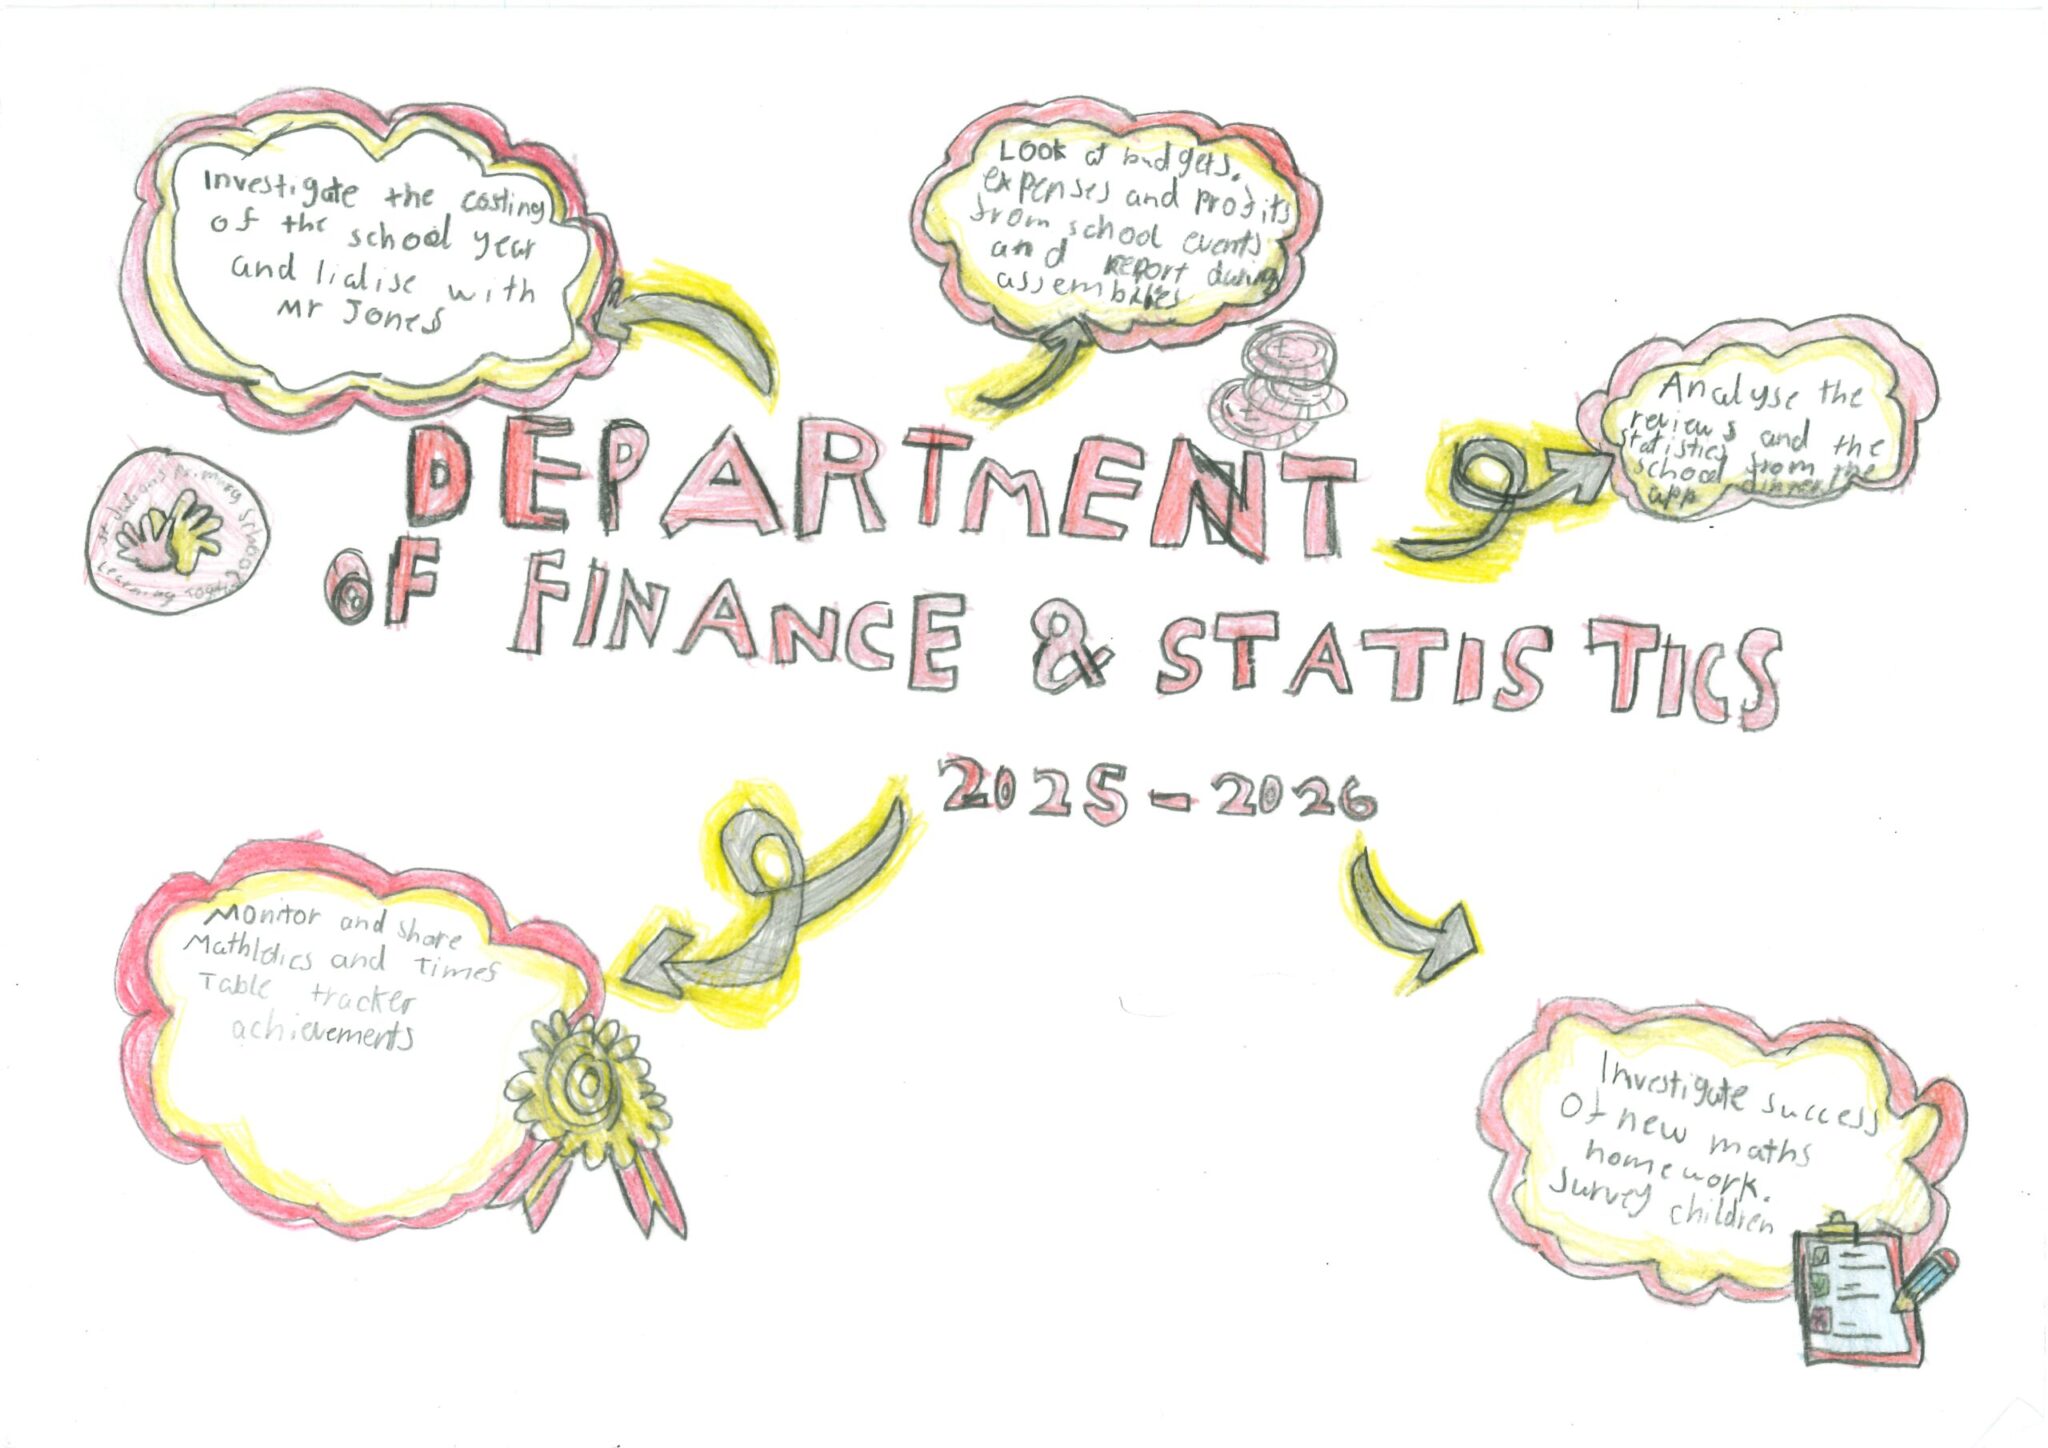 Investigate the costing
of the school year
and lialise with
Mr Jones
Look at budgets.
expenses and profits
from school events
and report during
assemblies
Analyse the
reviews and the
statistics from the
school dinner
app
St Julians Primary School
Learning Together
DEPARTMENT
OF FINANCE & STATISTICS
2025-2026
Monitor and share
Mathletics and Times
Table tracker
achievements
Investigate success
Of new maths
homework.
Survey children